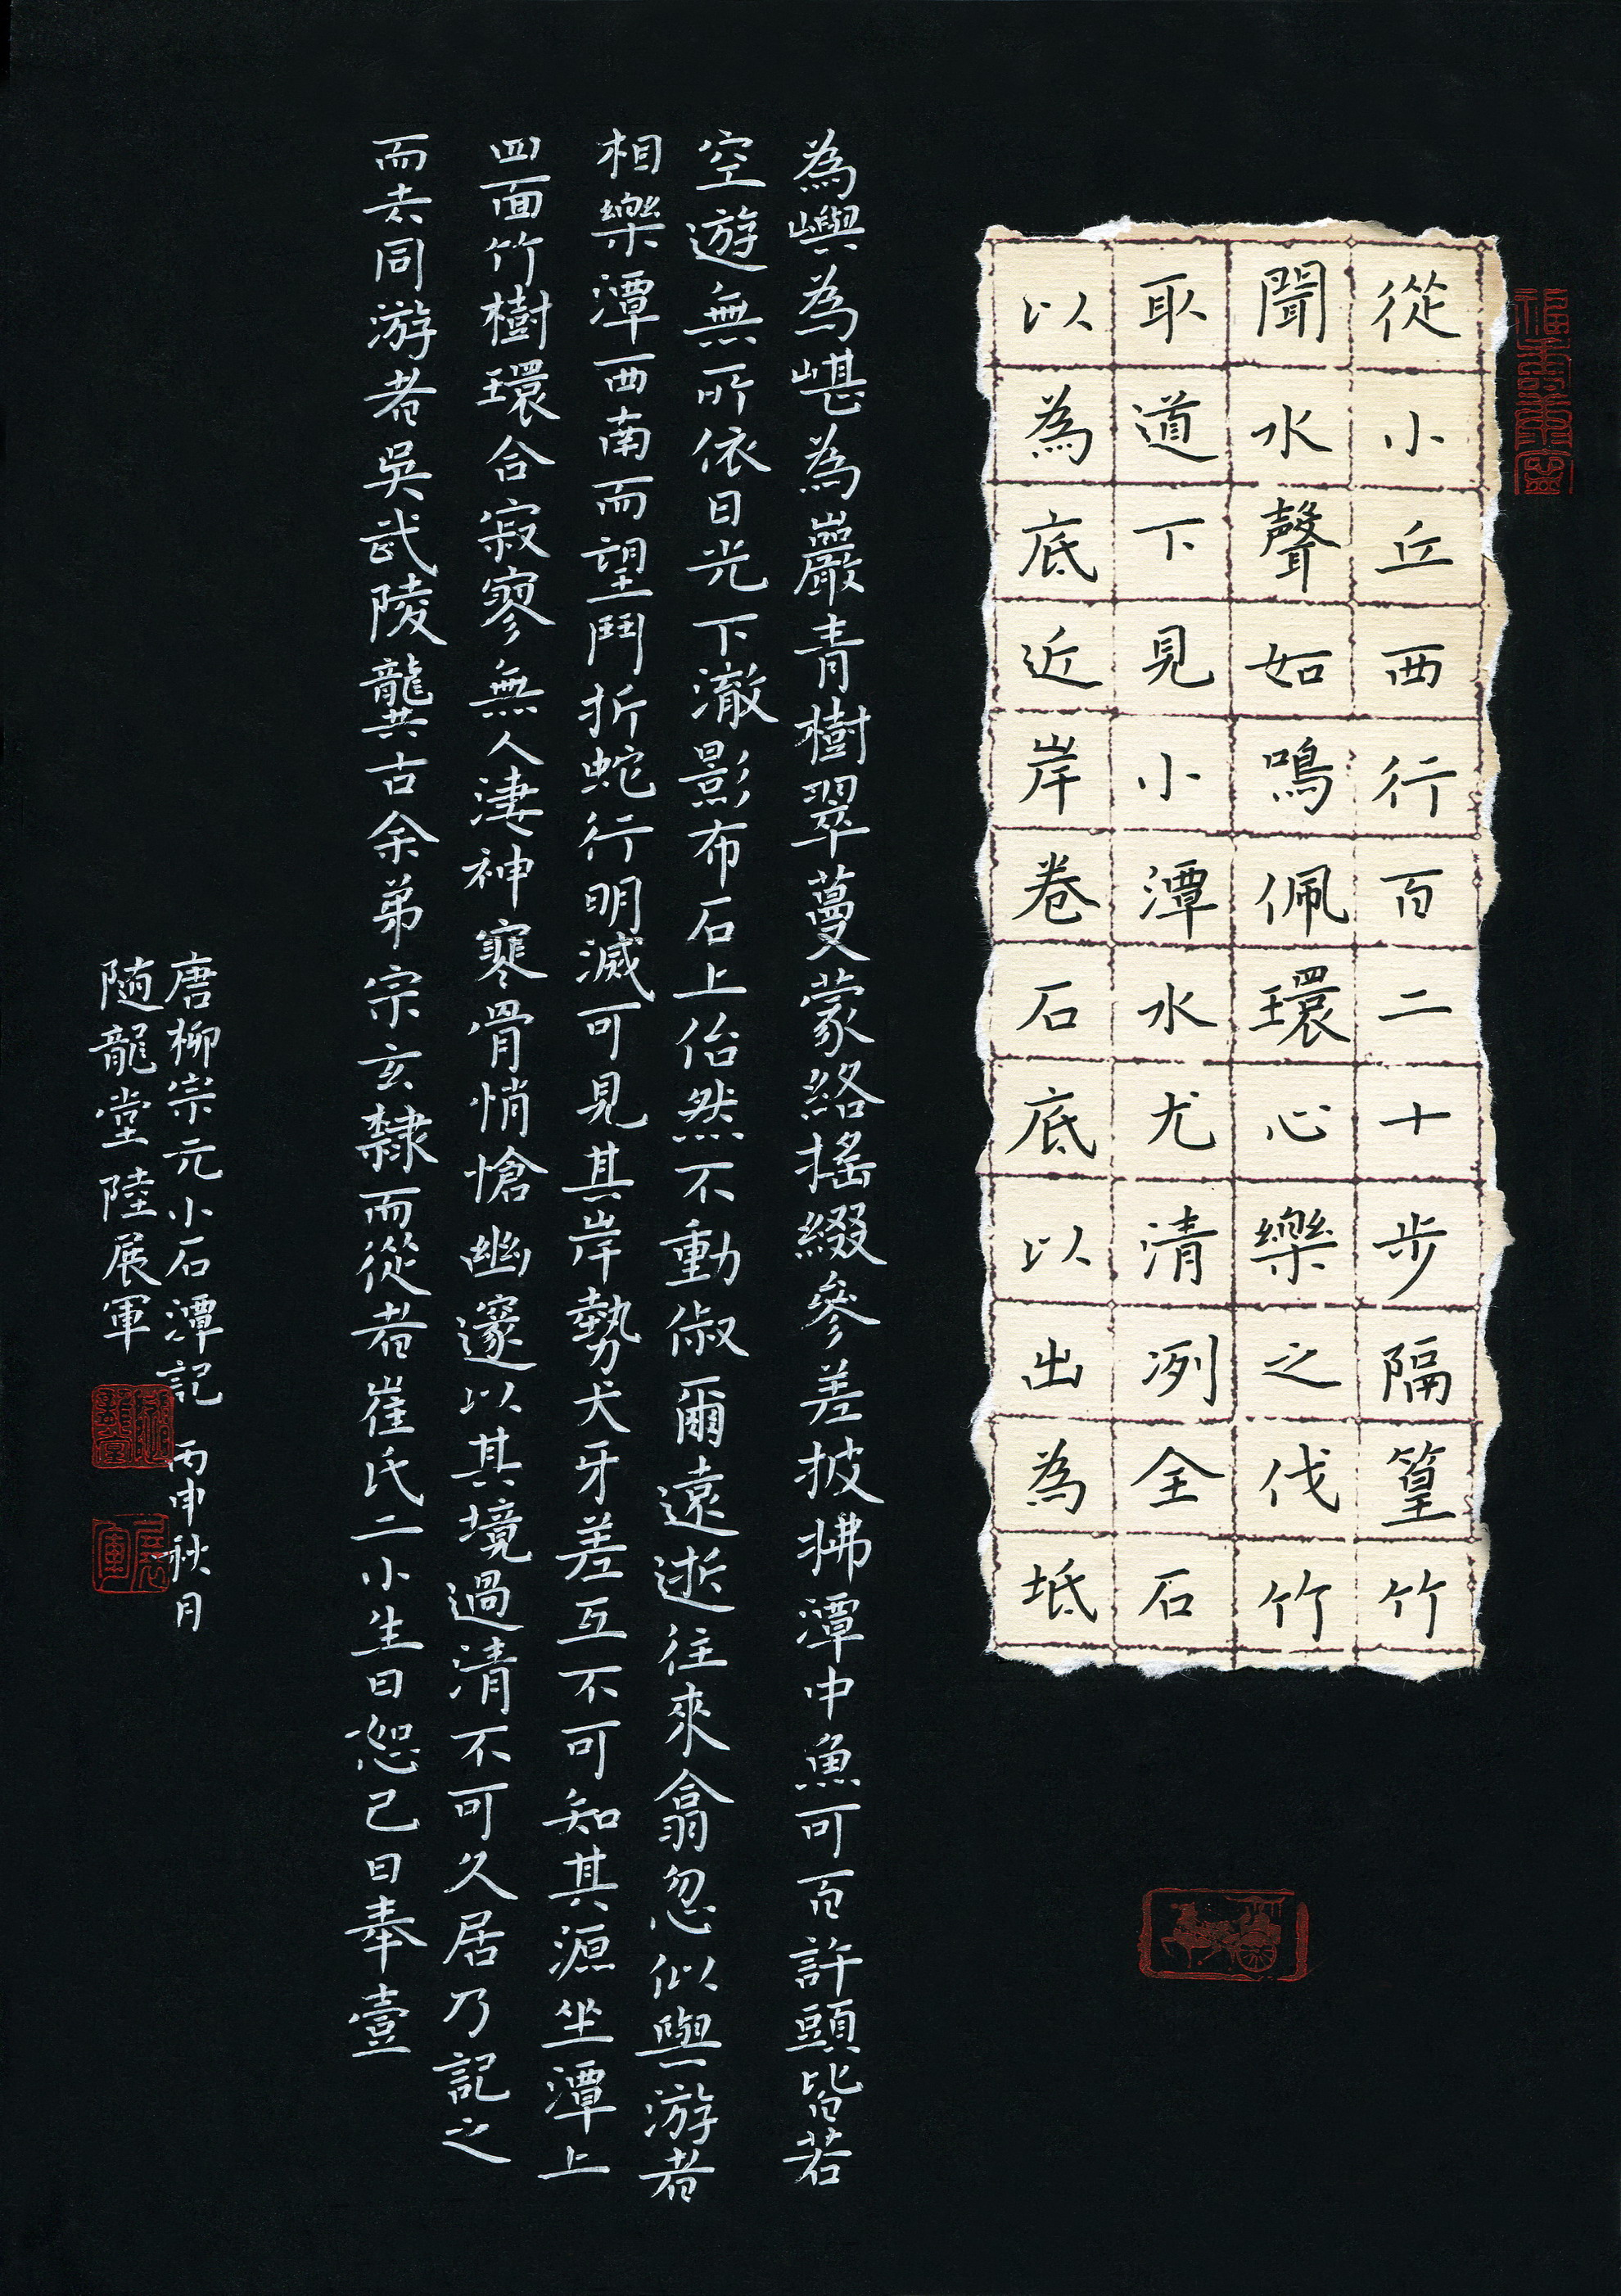 從小丘西行百二十步隔篁竹
聞水聲如鳴佩環心樂之伐竹
取道下見小潭水尤清冽全石
以為底近岸卷石底以出為坻
為嶼為嵁為巖青樹翠蔓蒙絡搖綴參差披拂潭中魚可百許頭皆若
空遊無所依日光下澈影布石上佁然不動俶爾遠逝往來翕忽似與游者
相樂潭西南而望鬥折蛇行明滅可見其岸勢犬牙差互不可知其源坐潭上
四面竹樹環合寂寥無人淒神寒骨悄愴幽邃以其境過清不可久居乃記之
而去同游者吳武陵龔古余弟宗玄隸而從者崔氏二小生曰恕己曰奉壹
唐柳宗元小石潭記 丙申秋月
随龍堂陸展軍